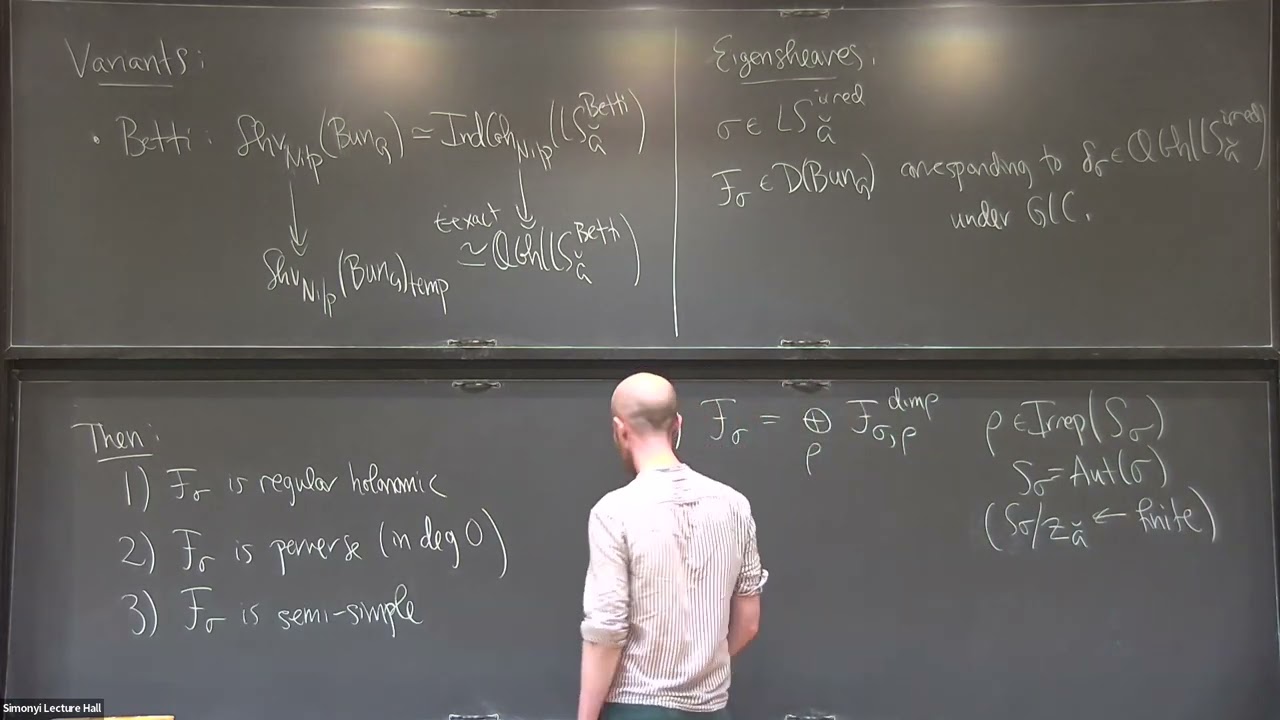 Variants:
• Betti: Shv_Nilp(Bun_G) ≃ IndCoh_Nilp(LS_Ǧ^Betti)
t-exact
Shv_Nilp(Bun_G)_temp ≃ QCoh(LS_Ǧ^Betti)
Eigensheaves:
σ ∈ LS_Ǧ^irred
F_σ ∈ D(Bun_G) corresponding to δ_σ ∈ QCoh(LS_Ǧ^irred)
under GLC.
Then:
1) F_σ is regular holonomic
2) F_σ is perverse (in deg 0)
3) F_σ is semi-simple
) F_σ = ⊕_ρ F_σ,ρ^dimρ ρ ∈ Irrep(S_σ)
S_σ = Aut(σ)
(S_σ/Z_Ǧ ← finite)
Simonyi Lecture Hall